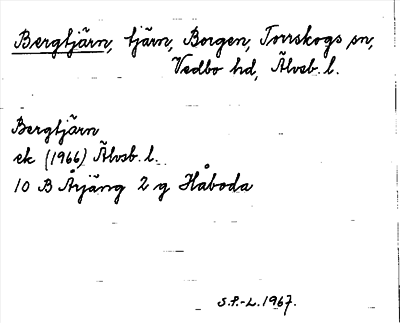 Bergtjärn, tjärn, Borgen, Torrskogs sn,
Vedbo hd, Älvsb. l.
Bergtjärn
ek (1966) Älvsb. l.
10 B Årjäng 2 g Håboda
S.F.-L. 1967.